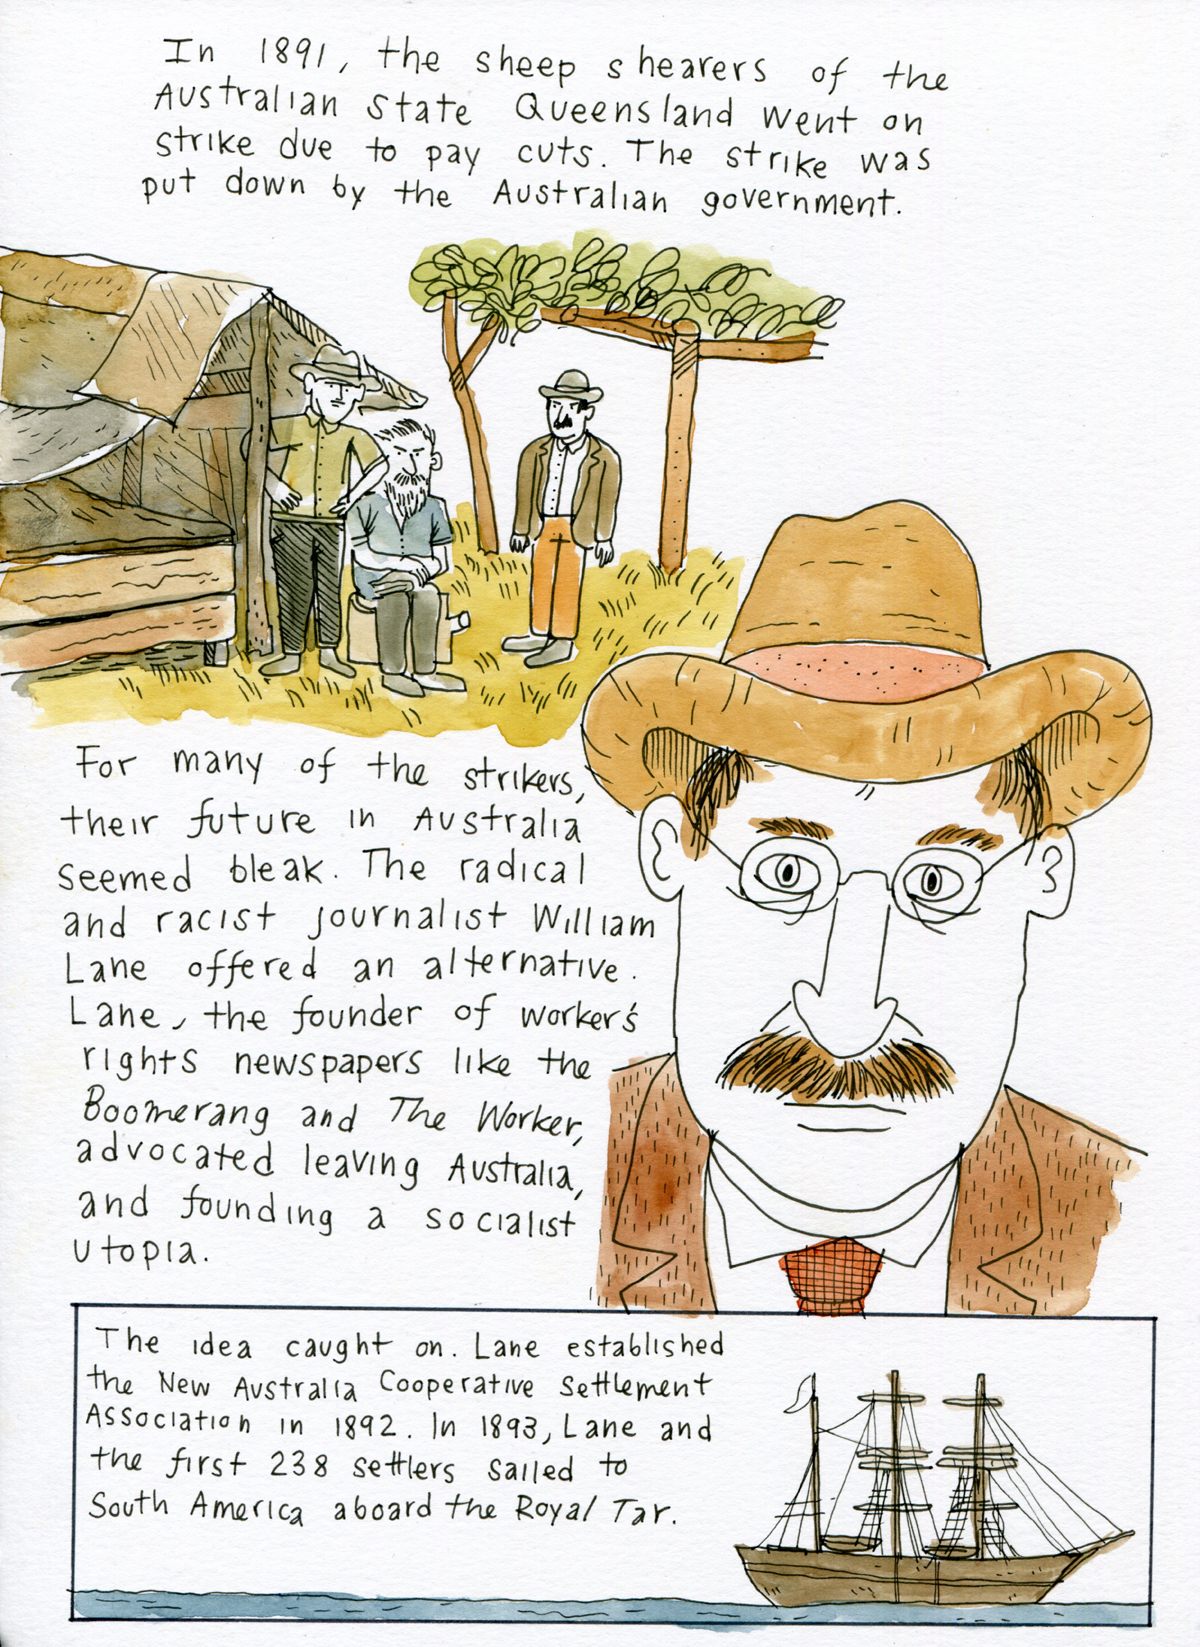 In 1891, the sheep shearers of the
Australian State Queensland went on
strike due to pay cuts. The strike was
put down by the Australian government.
For many of the strikers,
their future in Australia
seemed bleak. The radical
and racist journalist William
Lane offered an alternative.
Lane, the founder of worker's
rights newspapers like the
Boomerang and The Worker,
advocated leaving Australia,
and founding a socialist
utopia.
The idea caught on. Lane established
the New Australia Cooperative Settlement
Association in 1892. In 1893, Lane and
the first 238 settlers sailed to
South America aboard the Royal Tar.